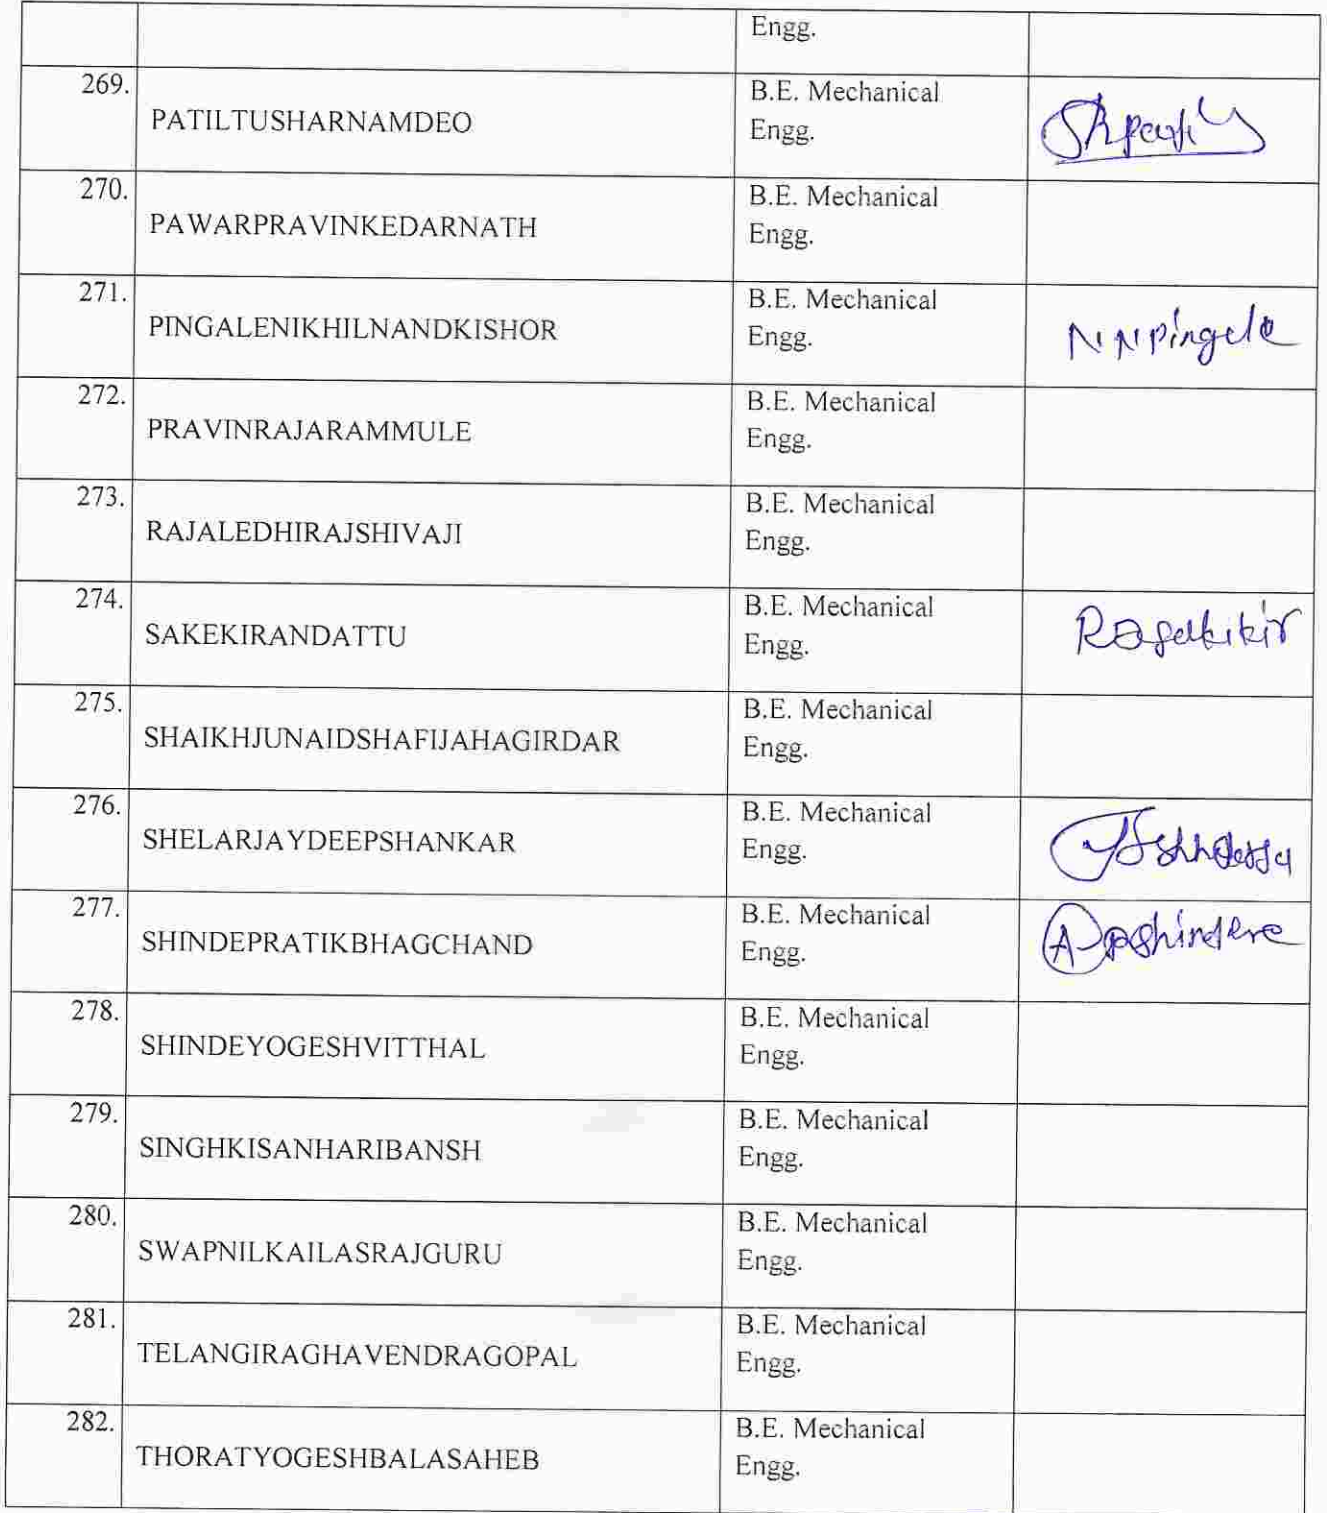 Engg.
269.
PATILTUSHARNAMDEO
B.E. Mechanical
Engg.
270.
PAWARPRAVINKEDARNATH
B.E. Mechanical
Engg.
271.
PINGALENIKHILNANDKISHOR
B.E. Mechanical
Engg.
272.
PRAVINRAJARAMMULE
B.E. Mechanical
Engg.
273.
RAJALEDHIRAJSHIVAJI
B.E. Mechanical
Engg.
274.
SAKEKIRANDATTU
B.E. Mechanical
Engg.
275.
SHAIKHJUNAIDSHAFIJAHAGIRDAR
B.E. Mechanical
Engg.
276.
SHELARJAYDEEPSHANKAR
B.E. Mechanical
Engg.
277.
SHINDEPRATIKBHAGCHAND
B.E. Mechanical
Engg.
278.
SHINDEYOGESHVITTHAL
B.E. Mechanical
Engg.
279.
SINGHKISANHARIBANSH
B.E. Mechanical
Engg.
280.
SWAPNILKAILASRAJGURU
B.E. Mechanical
Engg.
281.
TELANGIRAGHAVENDRAGOPAL
B.E. Mechanical
Engg.
282.
THORATYOGESHBALASAHEB
B.E. Mechanical
Engg.